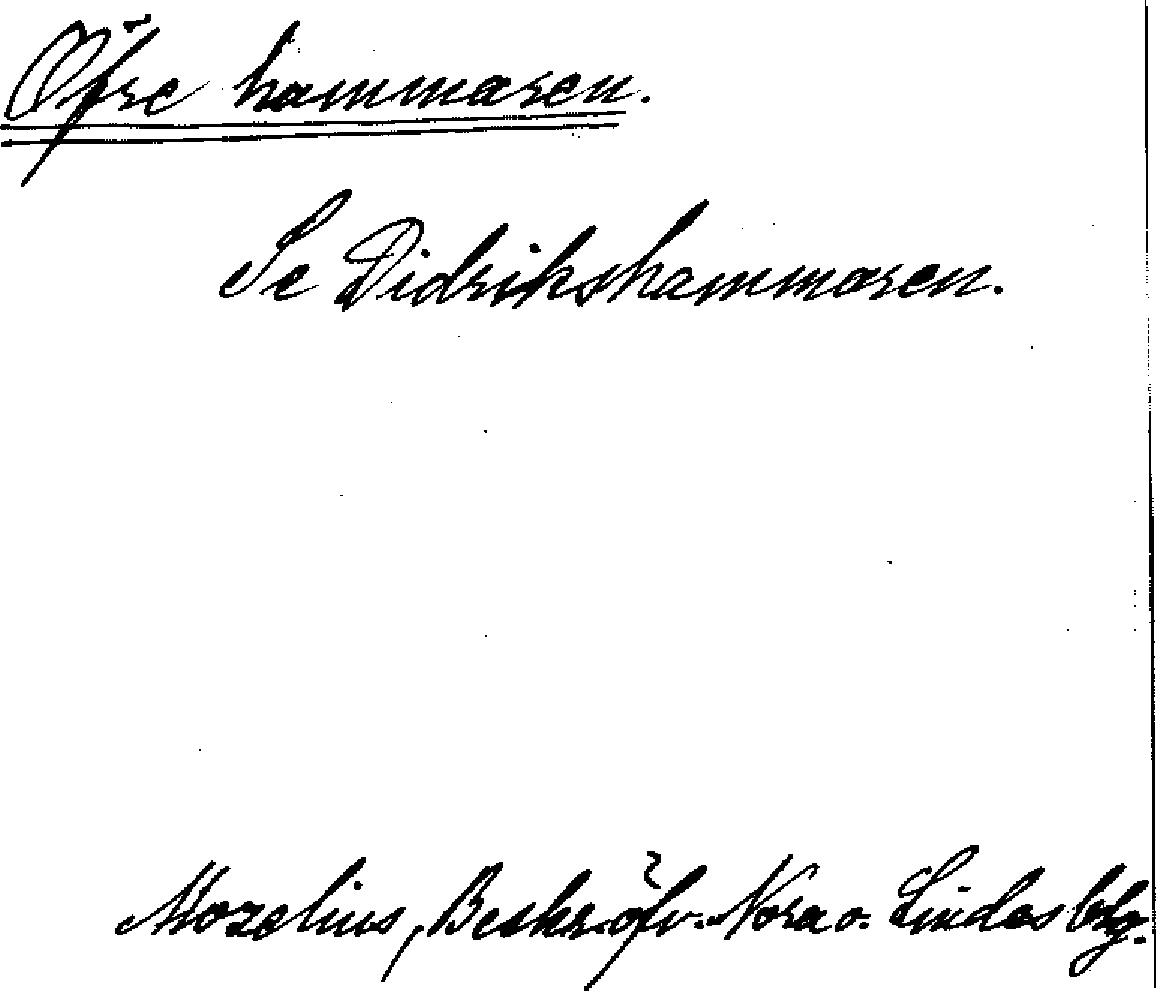 Öfre hammaren.
Se Didrikshammaren.
Mozelius, Beskr. öfv. Nora o. Lindes blg.